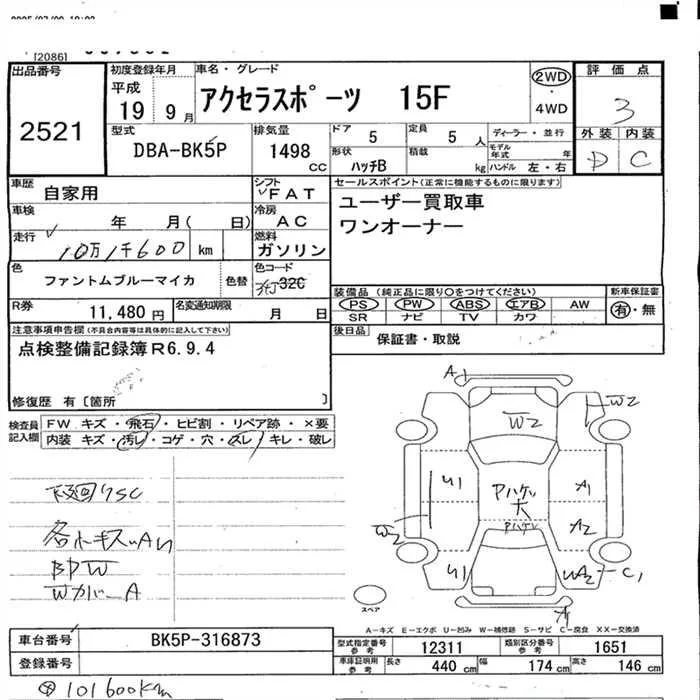 [20861]
出品番号
2521
初度登録年月
平成
19 9 月
車名・グレード
アクセラスポーツ 15F
2WD
・
4WD
評価点
3
外装 内装
D C
型式
DBA-BK5P
排気量
1498
CC
ドア
5
定員
5 人
形状
ハッチB
積載
kg
ディーラー・並行
モデル年式 年
ハンドル 左・右
車歴
自家用
シフト
FAT
車検
年 月( 日)
冷房
AC
走行
10万1千600 km
燃料
ガソリン
色
ファントムブルーマイカ
色替
色コード
32C
R券
11,480 円
名変通知期限
月 日
セールスポイント(正常に機能するものに限ります)
ユーザー買取車
ワンオーナー
装備品(純正品に限り○をつけてください)
PS PW ABS エアB AW
SR ナビ TV カワ
新車保証書
有・無
後日品
保証書・取説
注意事項申告欄(不具合内容等は具体的に記入して下さい)
点検整備記録簿R6.9.4
修復歴 有〔箇所 〕
検査員
記入欄
FW キズ・飛石・ヒビ割・リペア跡・×要
内装 キズ・汚レ・コゲ・穴・スレ・キレ・破レ
下廻りSC
各小キズ
BPW
WカバーA
A1
W2
W2
U1
A1
アハゲ
大
アハゲ
A2
W2
U1
WA2
C1
A1
スペア
A-キズ E-エクボ U-凹み W-補修跡 S-サビ C-腐食 XX-交換済
車台番号
BK5P-316873
登録番号
型式指定番号
参考
12311
類別区分番号
参考
1651
車庫証明用
参考
長さ
440 cm
幅
174 cm
高さ
146 cm
101600km